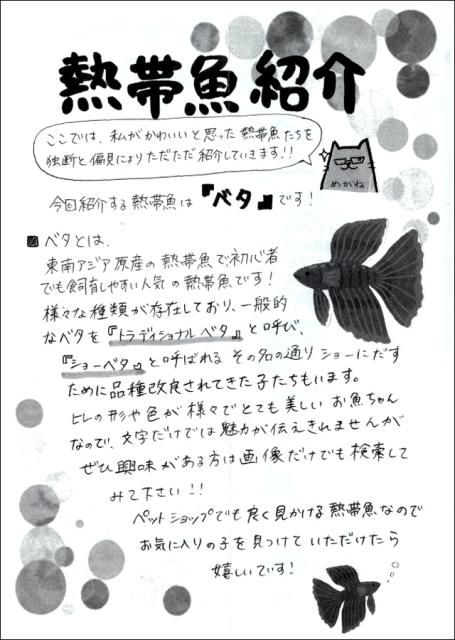 熱帯魚紹介
ここでは、私がかわいいと思った熱帯魚たちを
独断と偏見によりただただ紹介していきます!!
めがね
今回紹介する熱帯魚は『ベタ』です!
ベタとは、
東南アジア原産の熱帯魚で初心者
でも飼育しやすい人気の熱帯魚です!
様々な種類が存在しており、一般的
なベタを『トラディショナルベタ』と呼び、
『ショーベタ』と呼ばれるその名の通りショーにだす
ために品種改良されてきた子たちもいます。
ヒレの形や色が様々でとても美しいお魚ちゃん
なので、文字だけでは魅力が伝えきれませんが
ぜひ興味がある方は画像だけでも検索して
みて下さい!!
ペットショップでも良く見かける熱帯魚なので
お気に入りの子を見つけていただけたら
嬉しいです!